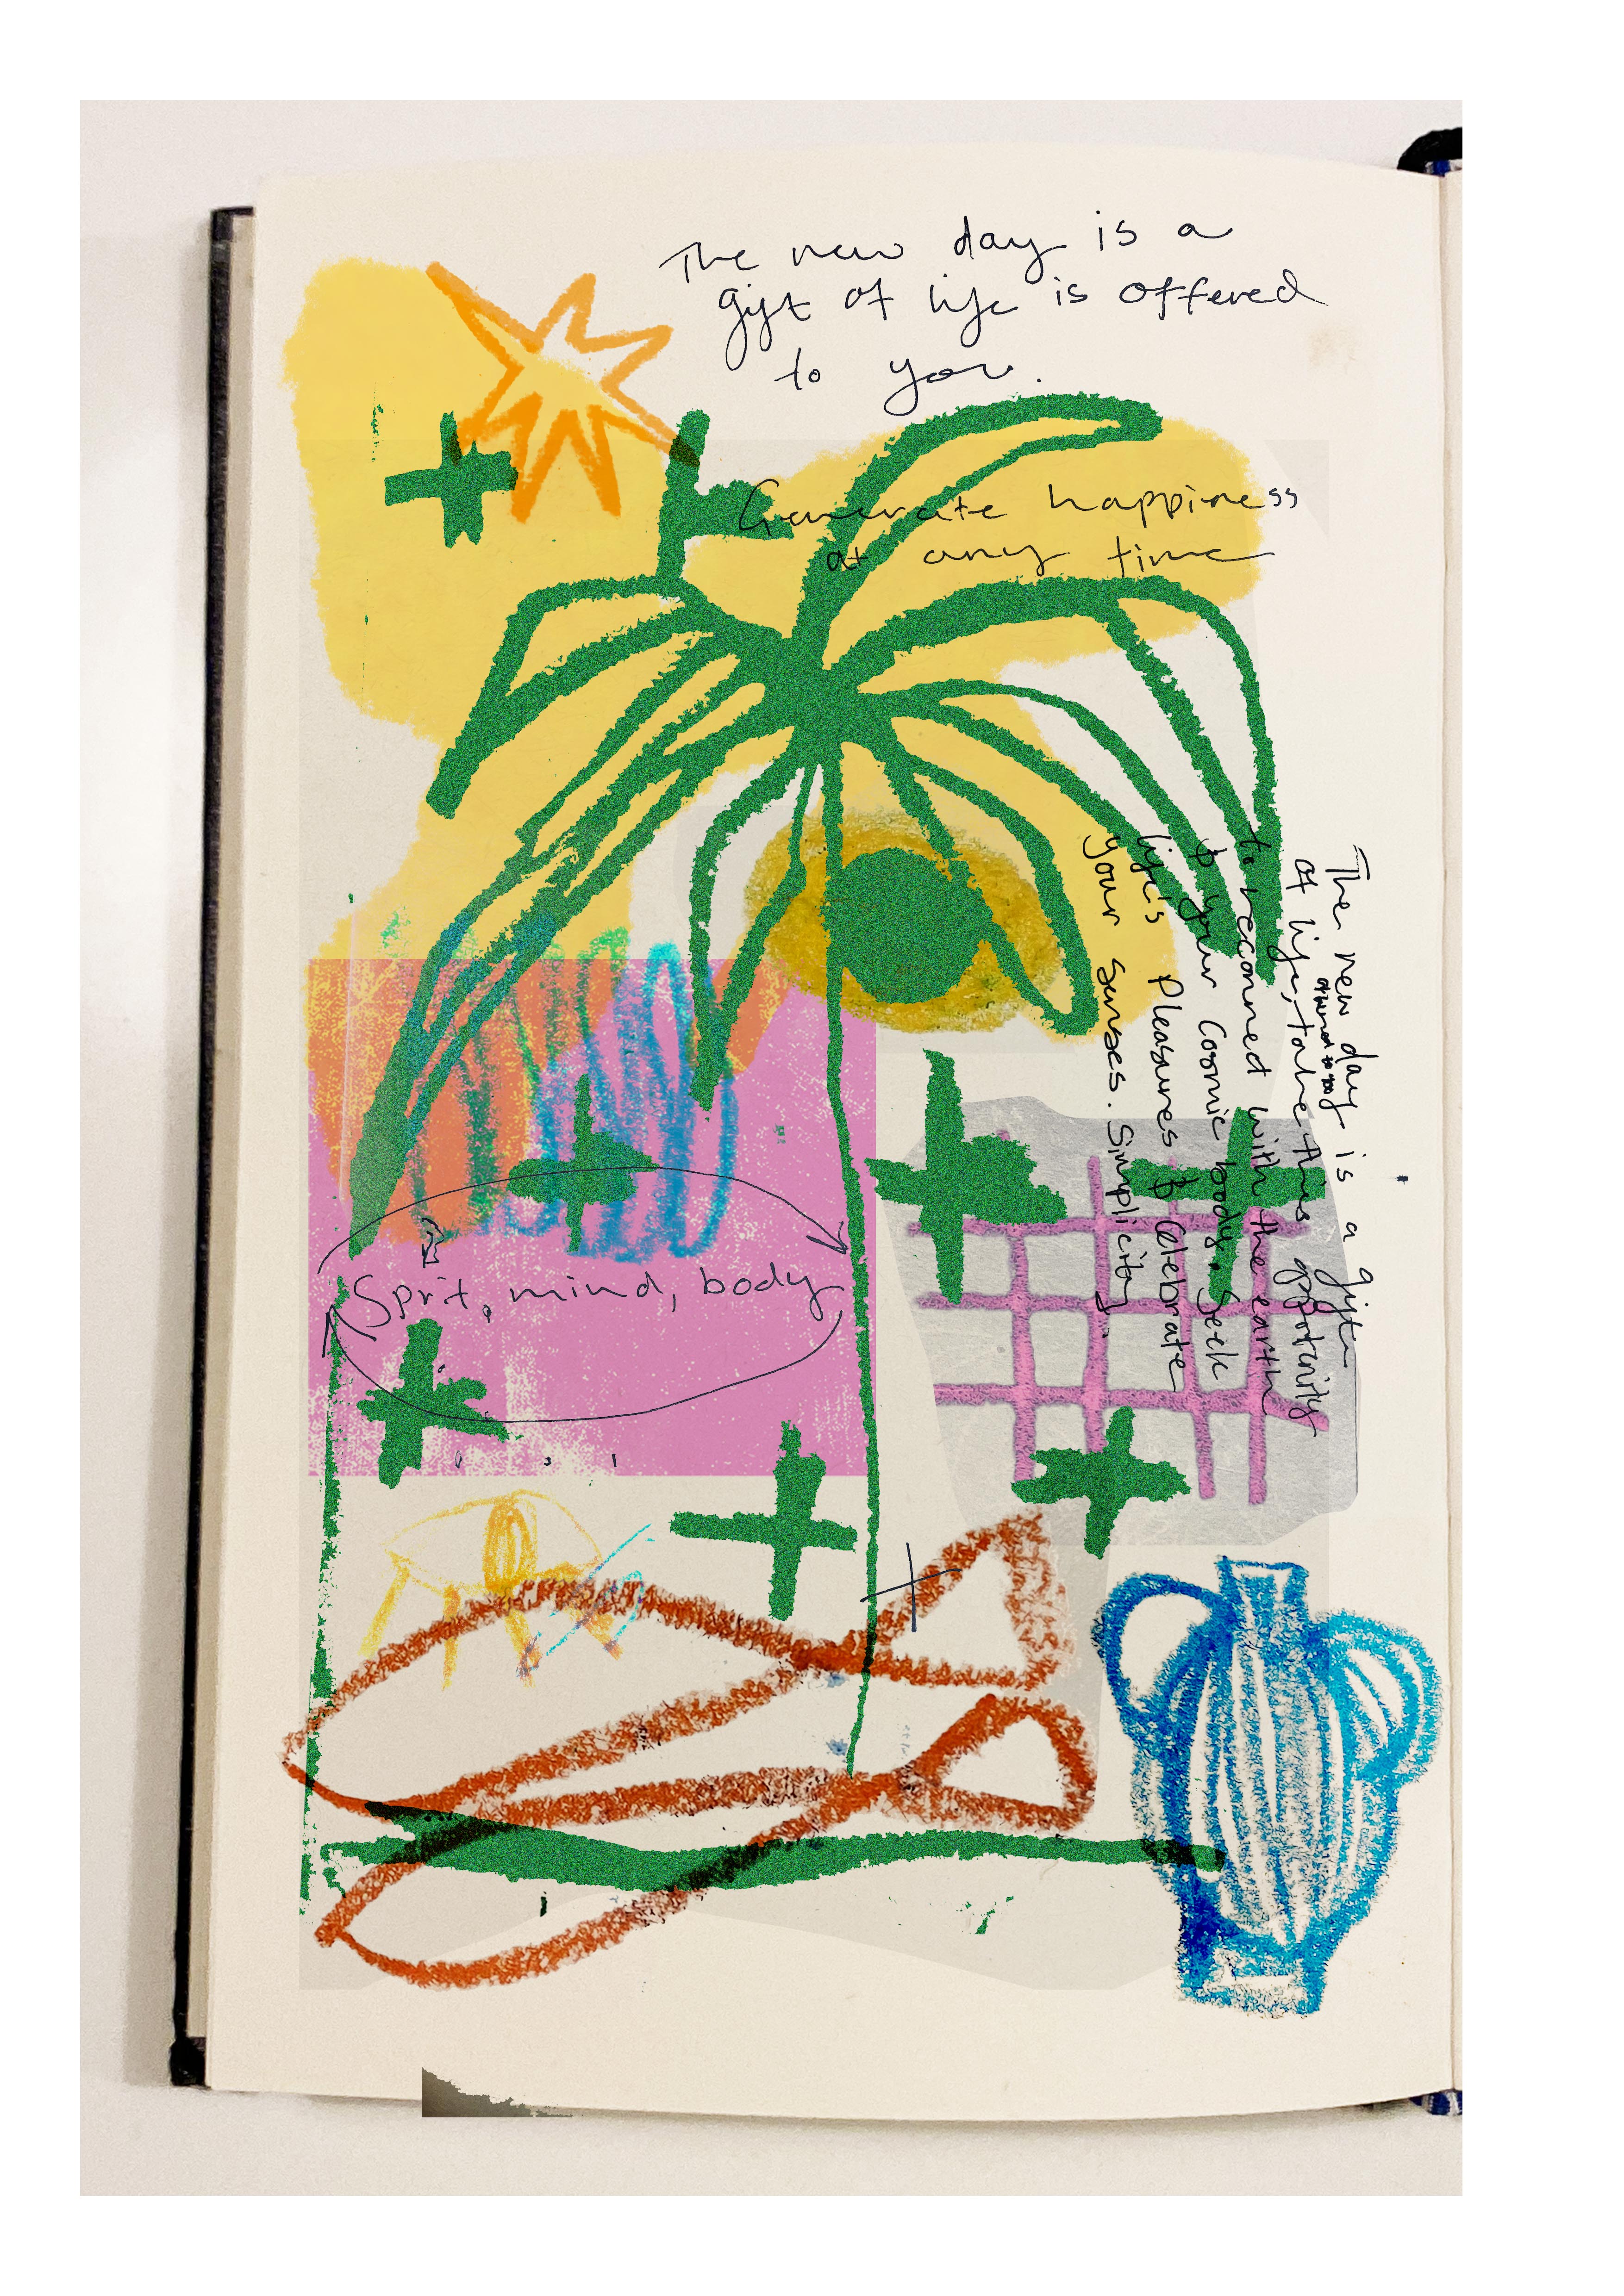 The new day is a
gift of life is offered
to you.
Generate happiness
at any time
The new day is a gift
of life, take this opportunity
offered to you
to reconnect with the earth
& your cosmic body. Seek
life's pleasures & celebrate
your senses. Simplicity
Sprit, mind, body